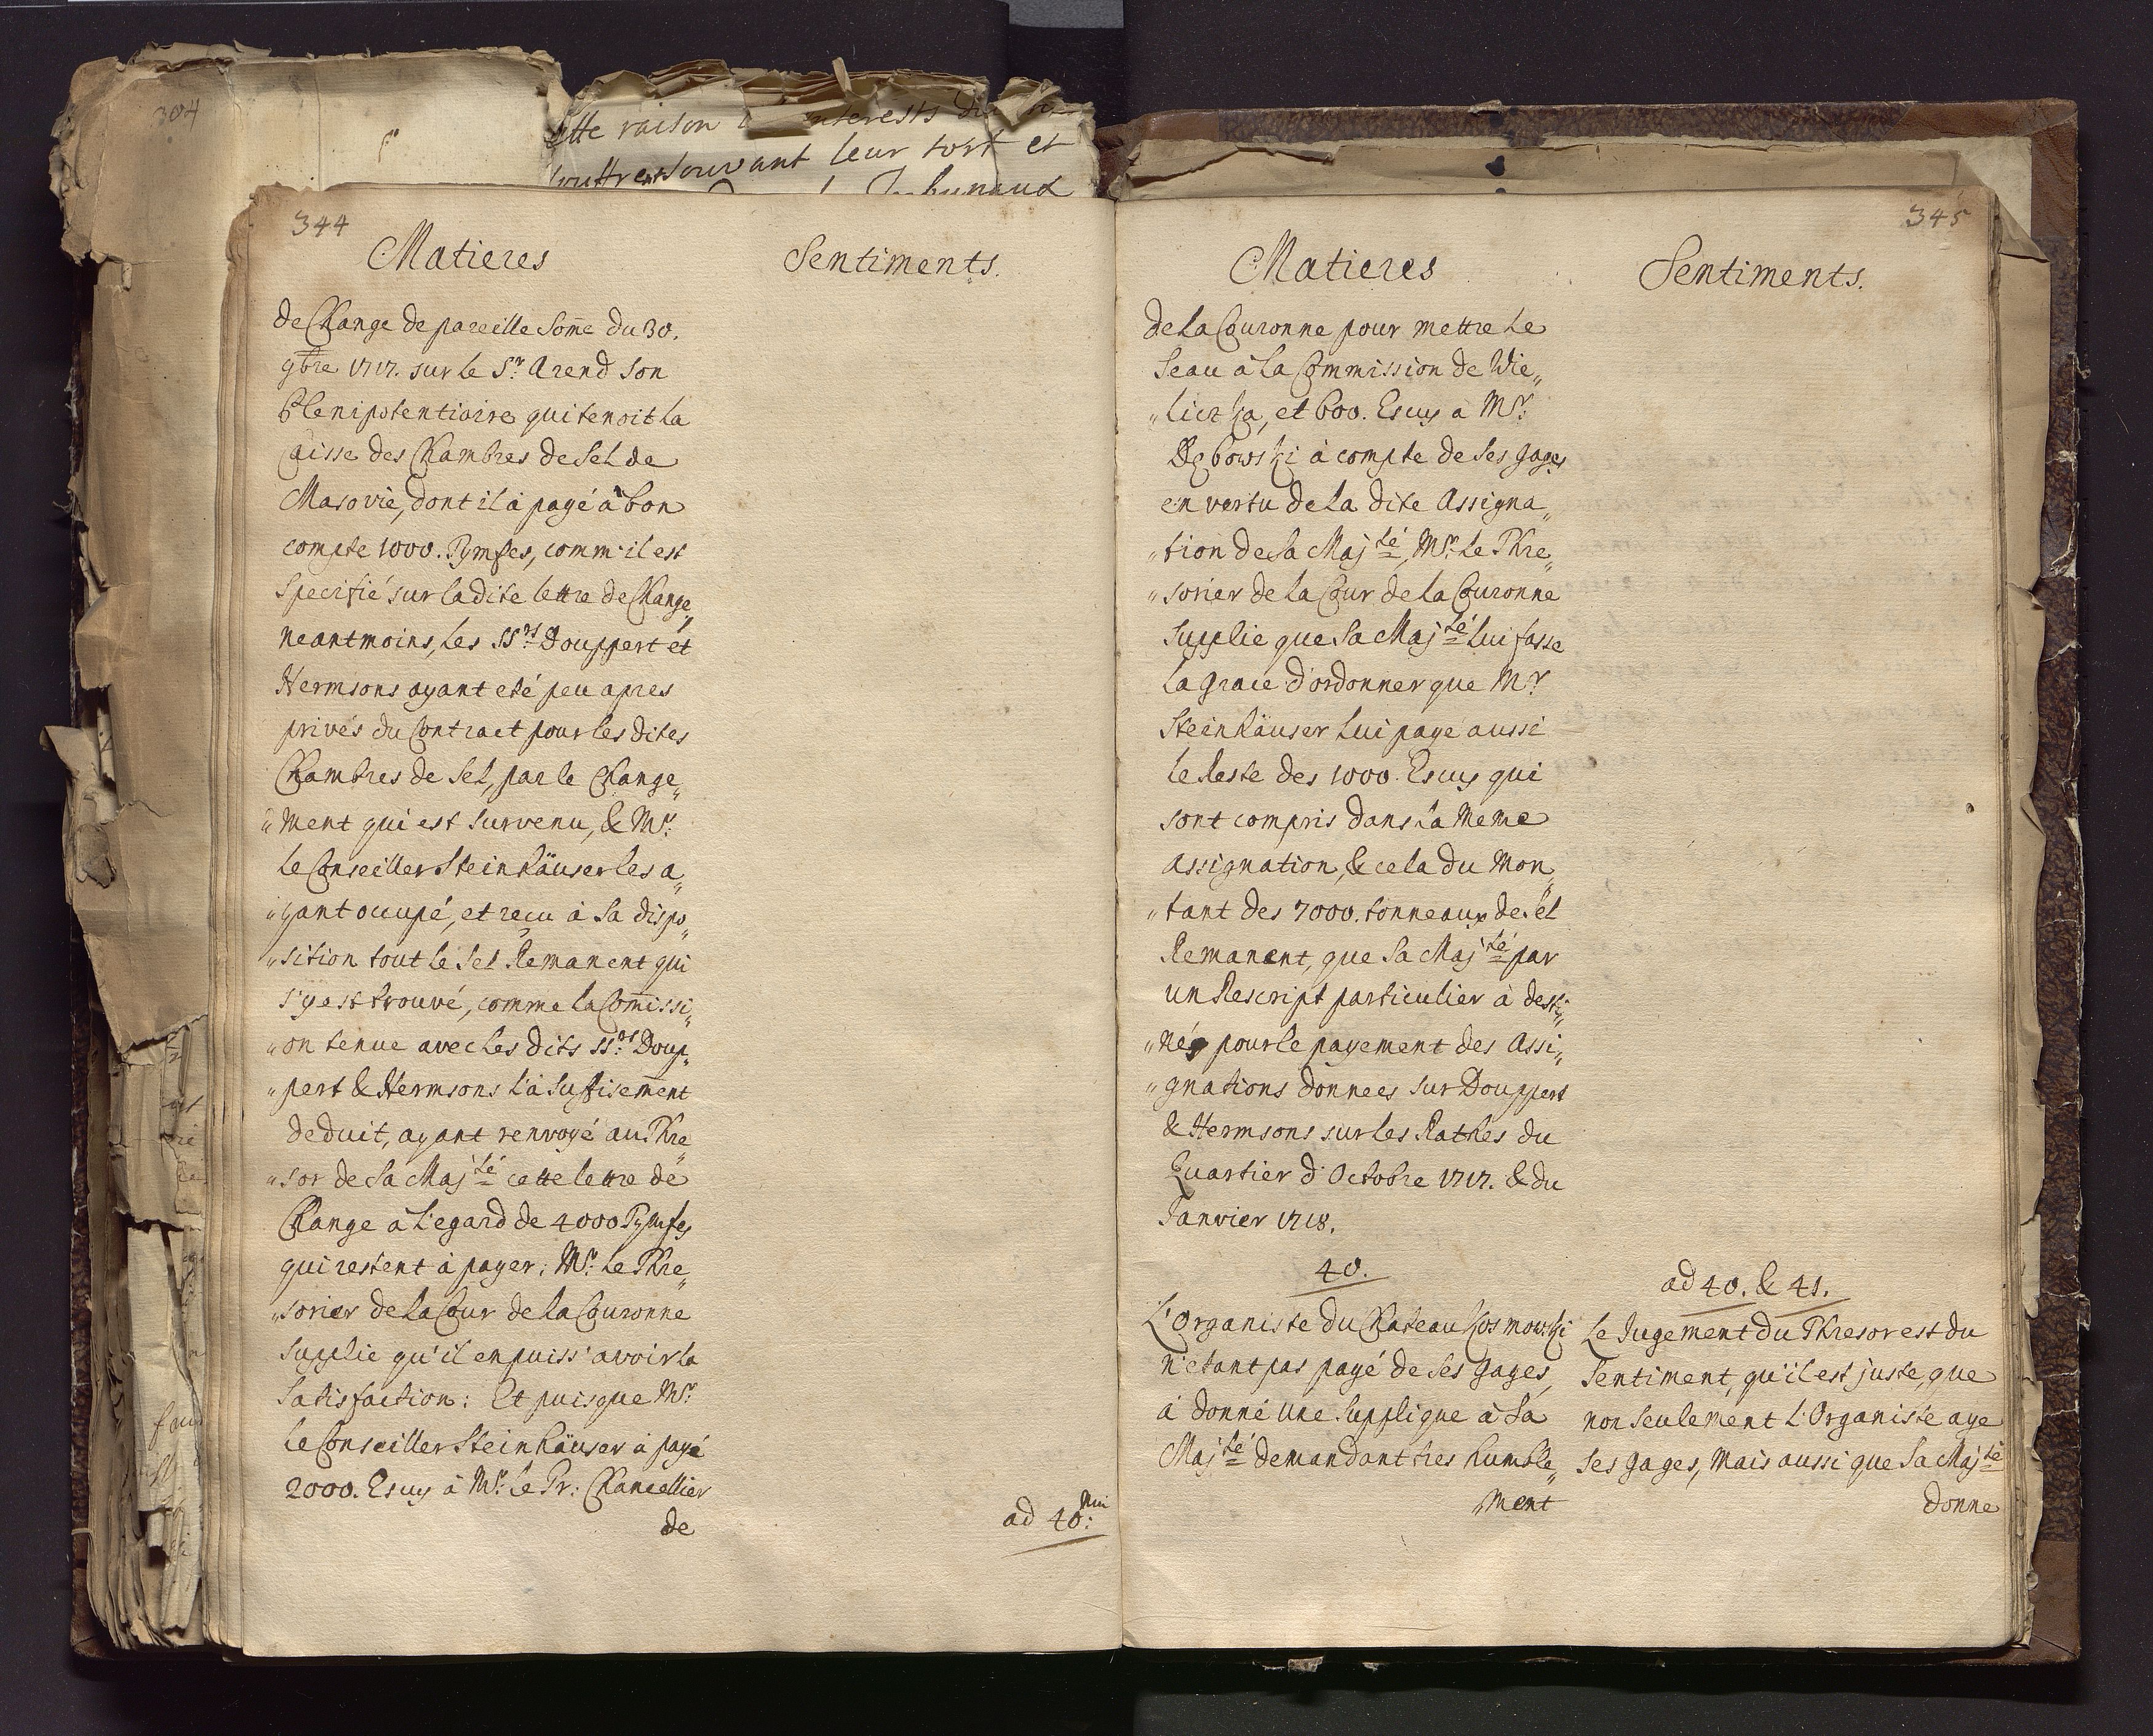 304
cette raison interests
souffrent souvant leur tort et
344
Matieres
Sentiments.
de Change de pareille Som̄e du 30.
9bre 1717. sur le Sr. Arend Son
Plenipotentiaire qui tenoit la
Caisse des Chambres de Sel de
Masovie, dont il à payé à bon
compte 1000. Tymfes, comm' il est
Specifié sur la dite lettre de Change,
neantmoins, les SSrs Douppert et
Hermsons ayant eté peu apres
privés du Contract pour les dites
Chambres de Sel, par le Change„
„ment qui est survenu, & Mr.
le Conseiller Steinhäuser les a„
„yant occupé, et reçu à Sa dispo„
„sition tout le Sel Remanent qui
s'y est trouvé, comme la Com̄issi„
„on tenue avec les dits SSrs Doup„
„pert & Hermsons l'à Suffisem̄ent
deduit, ayant renvoyé au Thre„
„sor de Sa Majté cette lettre de
Change à l'egard de 4000 Tymfes
qui restent à payer; Mr. Le Thre„
„sorier de la Cour de la Couronne
Supplie qu'il en puiss' avoir la
Satisfaction: Et puisque Mr.
le Conseiller Steinhäuser à payé
2000. Escus à Mr. Le Pr: Chancellier
de
ad 40:
345
Matieres
Sentiments.
de la Couronne pour mettre le
Seau à la Commission de Wie„
„liczka, et 600. Escus a Mr.
Dębowski à compte de Ses gages
en vertu de la dite Assigna„
„tion de Sa Majté, Mr. Le Thre„
„sorier de la Cour de la Couronne
Supplie que Sa Majté Lui fasse
la grace d'ordonner que Mr
Steinhäuser Lui paye aussi
le Reste des 1000. Escus qui
sont compris dans la meme
Assignation, & cela du Mon„
„tant des 7000. tonneaux de Sel
Remanent, que Sa Majté par
un Rescript particulier à desti„
„nés pour le payement des Assi„
„gnations donnees sur Douppert
& Hermsons sur les Rathes du
Quartier d'Octobre 1717. & du
Janvier 1718.
40.
L'Organiste du Chateau Kosmowski
n'etant pas payé de Ses gages,
à donné une Supplique à Sa
Majté demandant tres humble„
„ment
ad 40. & 41.
Le Jugement du Thresor est du
Sentiment, qu'il est juste, que
non Seulement L'Organiste aye
Ses gages, Mais aussi que Sa Majté
donne